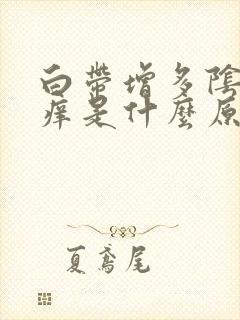 白帶增多陰
痒是什麼原
夏鳶尾